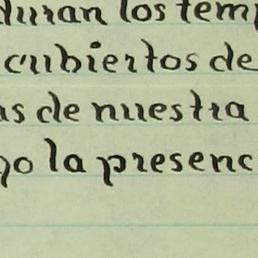 duran los tem
cubiertos de
as de nuestra
go la presenc